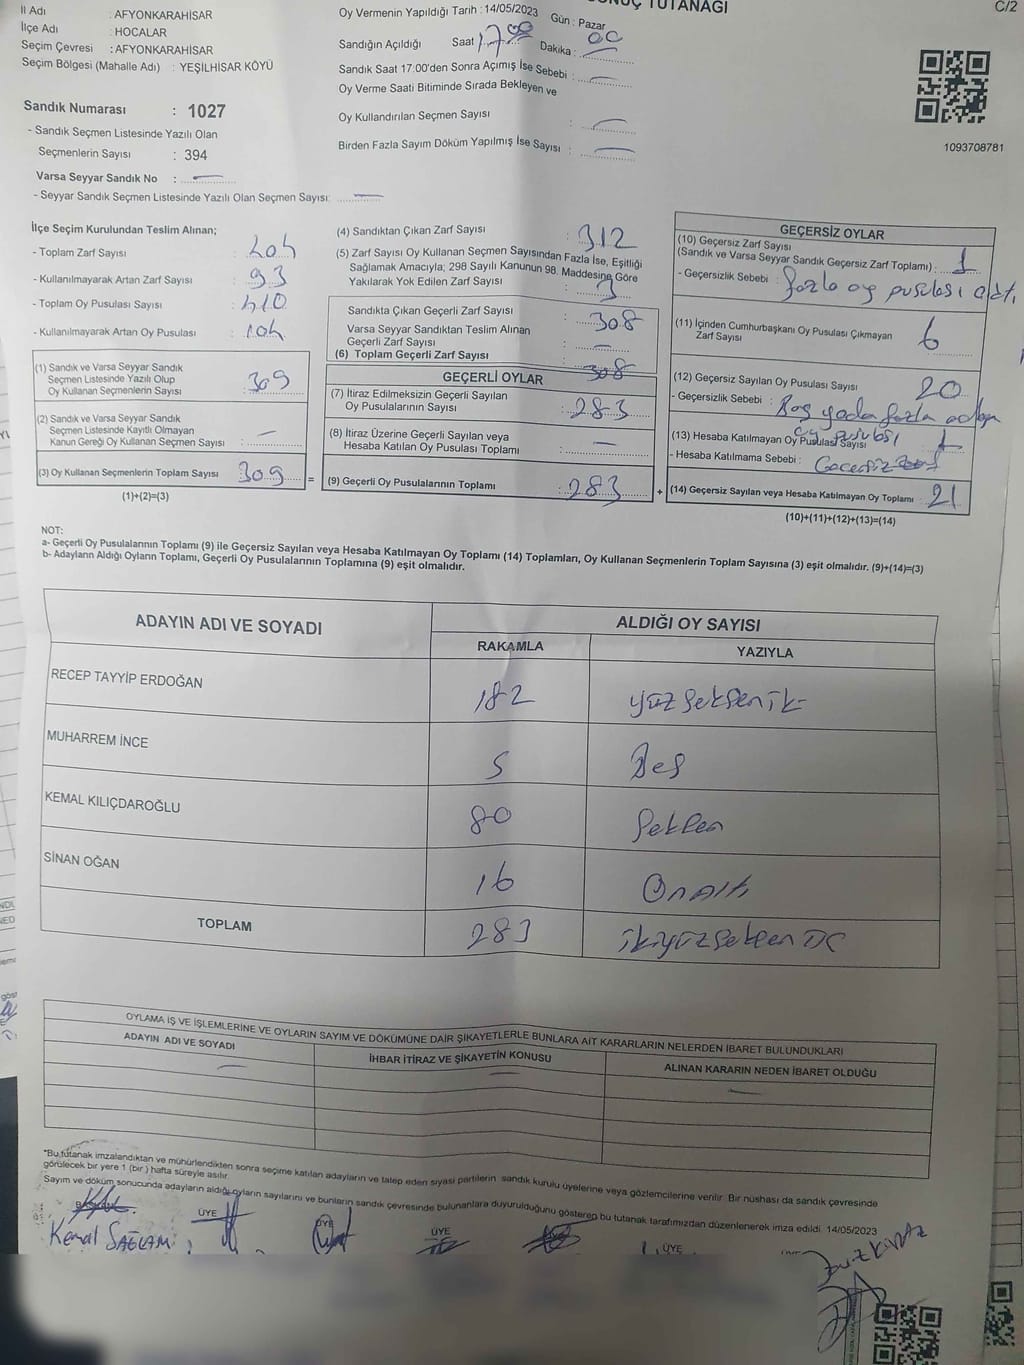 C/2
SONUÇ TUTANAĞI
İl Adı : AFYONKARAHİSAR
İlçe Adı : HOCALAR
Seçim Çevresi : AFYONKARAHİSAR
Seçim Bölgesi (Mahalle Adı) : YEŞİLHİSAR KÖYÜ
Sandık Numarası : 1027
- Sandık Seçmen Listesinde Yazılı Olan
Seçmenlerin Sayısı : 394
Varsa Seyyar Sandık No : —
- Seyyar Sandık Seçmen Listesinde Yazılı Olan Seçmen Sayısı: —
Oy Vermenin Yapıldığı Tarih : 14/05/2023 Gün : Pazar
Sandığın Açıldığı Saat 17 00 Dakika : 00
Sandık Saat 17:00'den Sonra Açımış İse Sebebi : —
Oy Verme Saati Bitiminde Sırada Bekleyen ve
Oy Kullandırılan Seçmen Sayısı : —
Birden Fazla Sayım Döküm Yapılmış İse Sayısı : —
1093708781
İlçe Seçim Kurulundan Teslim Alınan;
- Toplam Zarf Sayısı : 404
- Kullanılmayarak Artan Zarf Sayısı : 93
- Toplam Oy Pusulası Sayısı : 410
- Kullanılmayarak Artan Oy Pusulası : 104
(1) Sandık ve Varsa Seyyar Sandık
Seçmen Listesinde Yazılı Olup
Oy Kullanan Seçmenlerin Sayısı : 309
(2) Sandık ve Varsa Seyyar Sandık
Seçmen Listesinde Kayıtlı Olmayan
Kanun Gereği Oy Kullanan Seçmen Sayısı : —
(3) Oy Kullanan Seçmenlerin Toplam Sayısı 309 =
(1)+(2)=(3)
(4) Sandıktan Çıkan Zarf Sayısı : 312
(5) Zarf Sayısı Oy Kullanan Seçmen Sayısından Fazla İse, Eşitliği
Sağlamak Amacıyla; 298 Sayılı Kanunun 98. Maddesine Göre
Yakılarak Yok Edilen Zarf Sayısı : 3
Sandıkta Çıkan Geçerli Zarf Sayısı : 308
Varsa Seyyar Sandıktan Teslim Alınan
Geçerli Zarf Sayısı : —
(6) Toplam Geçerli Zarf Sayısı : 308
GEÇERLİ OYLAR
(7) İtiraz Edilmeksizin Geçerli Sayılan
Oy Pusulalarının Sayısı : 283
(8) İtiraz Üzerine Geçerli Sayılan veya
Hesaba Katılan Oy Pusulası Toplamı : —
(9) Geçerli Oy Pusulalarının Toplamı : 283 +
GEÇERSİZ OYLAR
(10) Geçersiz Zarf Sayısı
(Sandık ve Varsa Seyyar Sandık Geçersiz Zarf Toplamı) : 1
- Geçersizlik Sebebi : fazla oy pusulası
(11) İçinden Cumhurbaşkanı Oy Pusulası Çıkmayan
Zarf Sayısı 6
(12) Geçersiz Sayılan Oy Pusulası Sayısı 20
- Geçersizlik Sebebi : Boş yada fazla
oy pusulası
(13) Hesaba Katılmayan Oy Pusulası Sayısı : 1
- Hesaba Katılmama Sebebi : Geçersiz
(14) Geçersiz Sayılan veya Hesaba Katılmayan Oy Toplamı 21
(10)+(11)+(12)+(13)=(14)
NOT:
a- Geçerli Oy Pusulalarının Toplamı (9) ile Geçersiz Sayılan veya Hesaba Katılmayan Oy Toplamı (14) Toplamları, Oy Kullanan Seçmenlerin Toplam Sayısına (3) eşit olmalıdır. (9)+(14)=(3)
b- Adayların Aldığı Oyların Toplamı, Geçerli Oy Pusulalarının Toplamına (9) eşit olmalıdır.
ADAYIN ADI VE SOYADI
ALDIĞI OY SAYISI
RAKAMLA YAZIYLA
RECEP TAYYİP ERDOĞAN 182 yüzseksenik
MUHARREM İNCE 5 Beş
KEMAL KILIÇDAROĞLU 80 seksen
SİNAN OĞAN 16 Onaltı
TOPLAM 283 ikiyüzseksen üç
OYLAMA İŞ VE İŞLEMLERİNE VE OYLARIN SAYIM VE DÖKÜMÜNE DAİR ŞİKAYETLERLE BUNLARA AİT KARARLARIN NELERDEN İBARET BULUNDUKLARI
ADAYIN ADI VE SOYADI
İHBAR İTİRAZ VE ŞİKAYETİN KONUSU
ALINAN KARARIN NEDEN İBARET OLDUĞU
— — —
*Bu tutanak imzalandıktan ve mühürlendikten sonra seçime katılan adayların ve talep eden siyasi partilerin sandık kurulu üyelerine veya gözlemcilerine verilir. Bir nüshası da sandık çevresinde
görülecek bir yere 1 (bir ) hafta süreyle asılır.
Sayım ve döküm sonucunda adayların aldığı oyların sayılarını ve bunların sandık çevresinde bulunanlara duyurulduğunu gösteren bu tutanak tarafımızdan düzenlenerek imza edildi. 14/05/2023
BAŞKAN ÜYE ÜYE ÜYE ÜYE
Kemal SAĞLAM